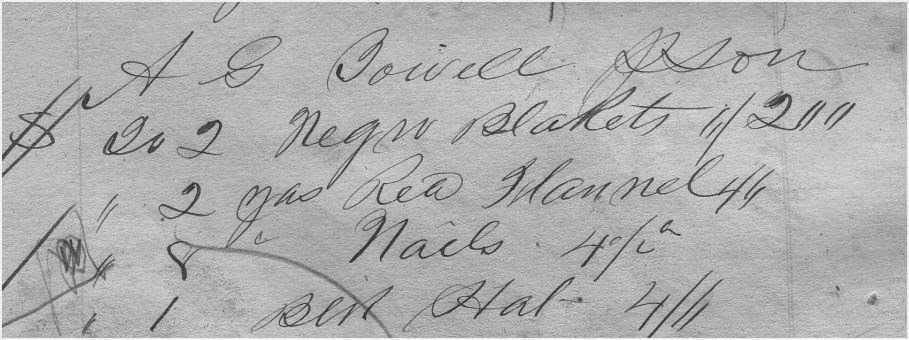 A G Powell & Son
To 2 Negro Blakets "/ 2 " "
" 2 yds Red Flannel 4/"
" 8 " Nails 4
" 1 Belt Hat 4/"